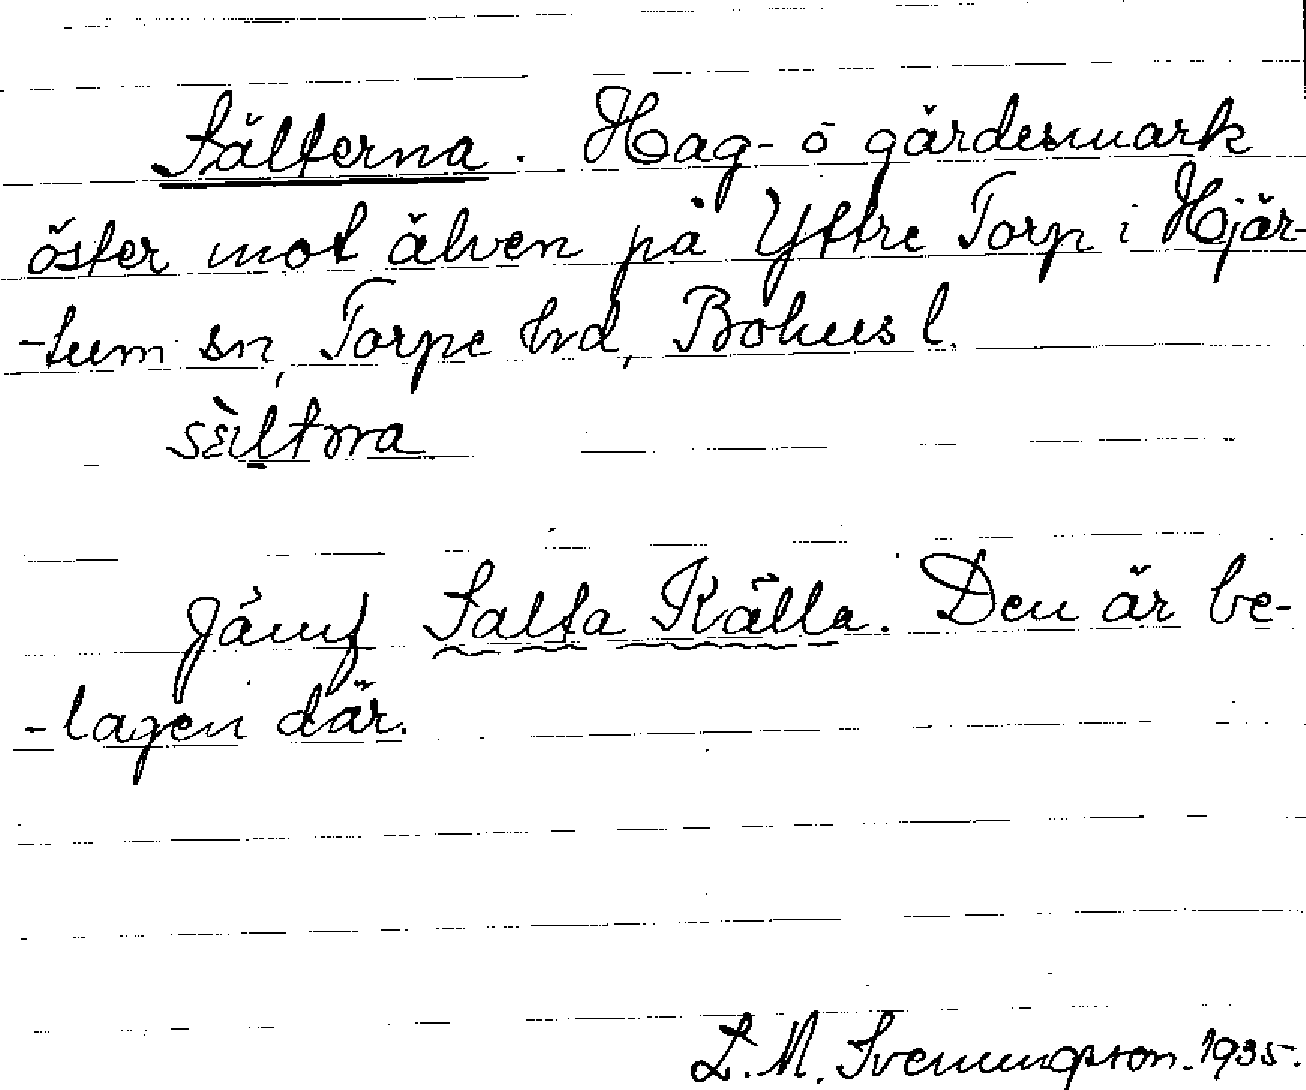 Sälterna. Hag- o gärdesmark
öster mot älven på Yttre Torp i Hjär-
-tum sn, Torpe hrd, Bohusl.
sæ̀ltᴔrna
Jämf Salta Källa. Den är be-
-lagen där.
L. M. Svenungsson. 1935.